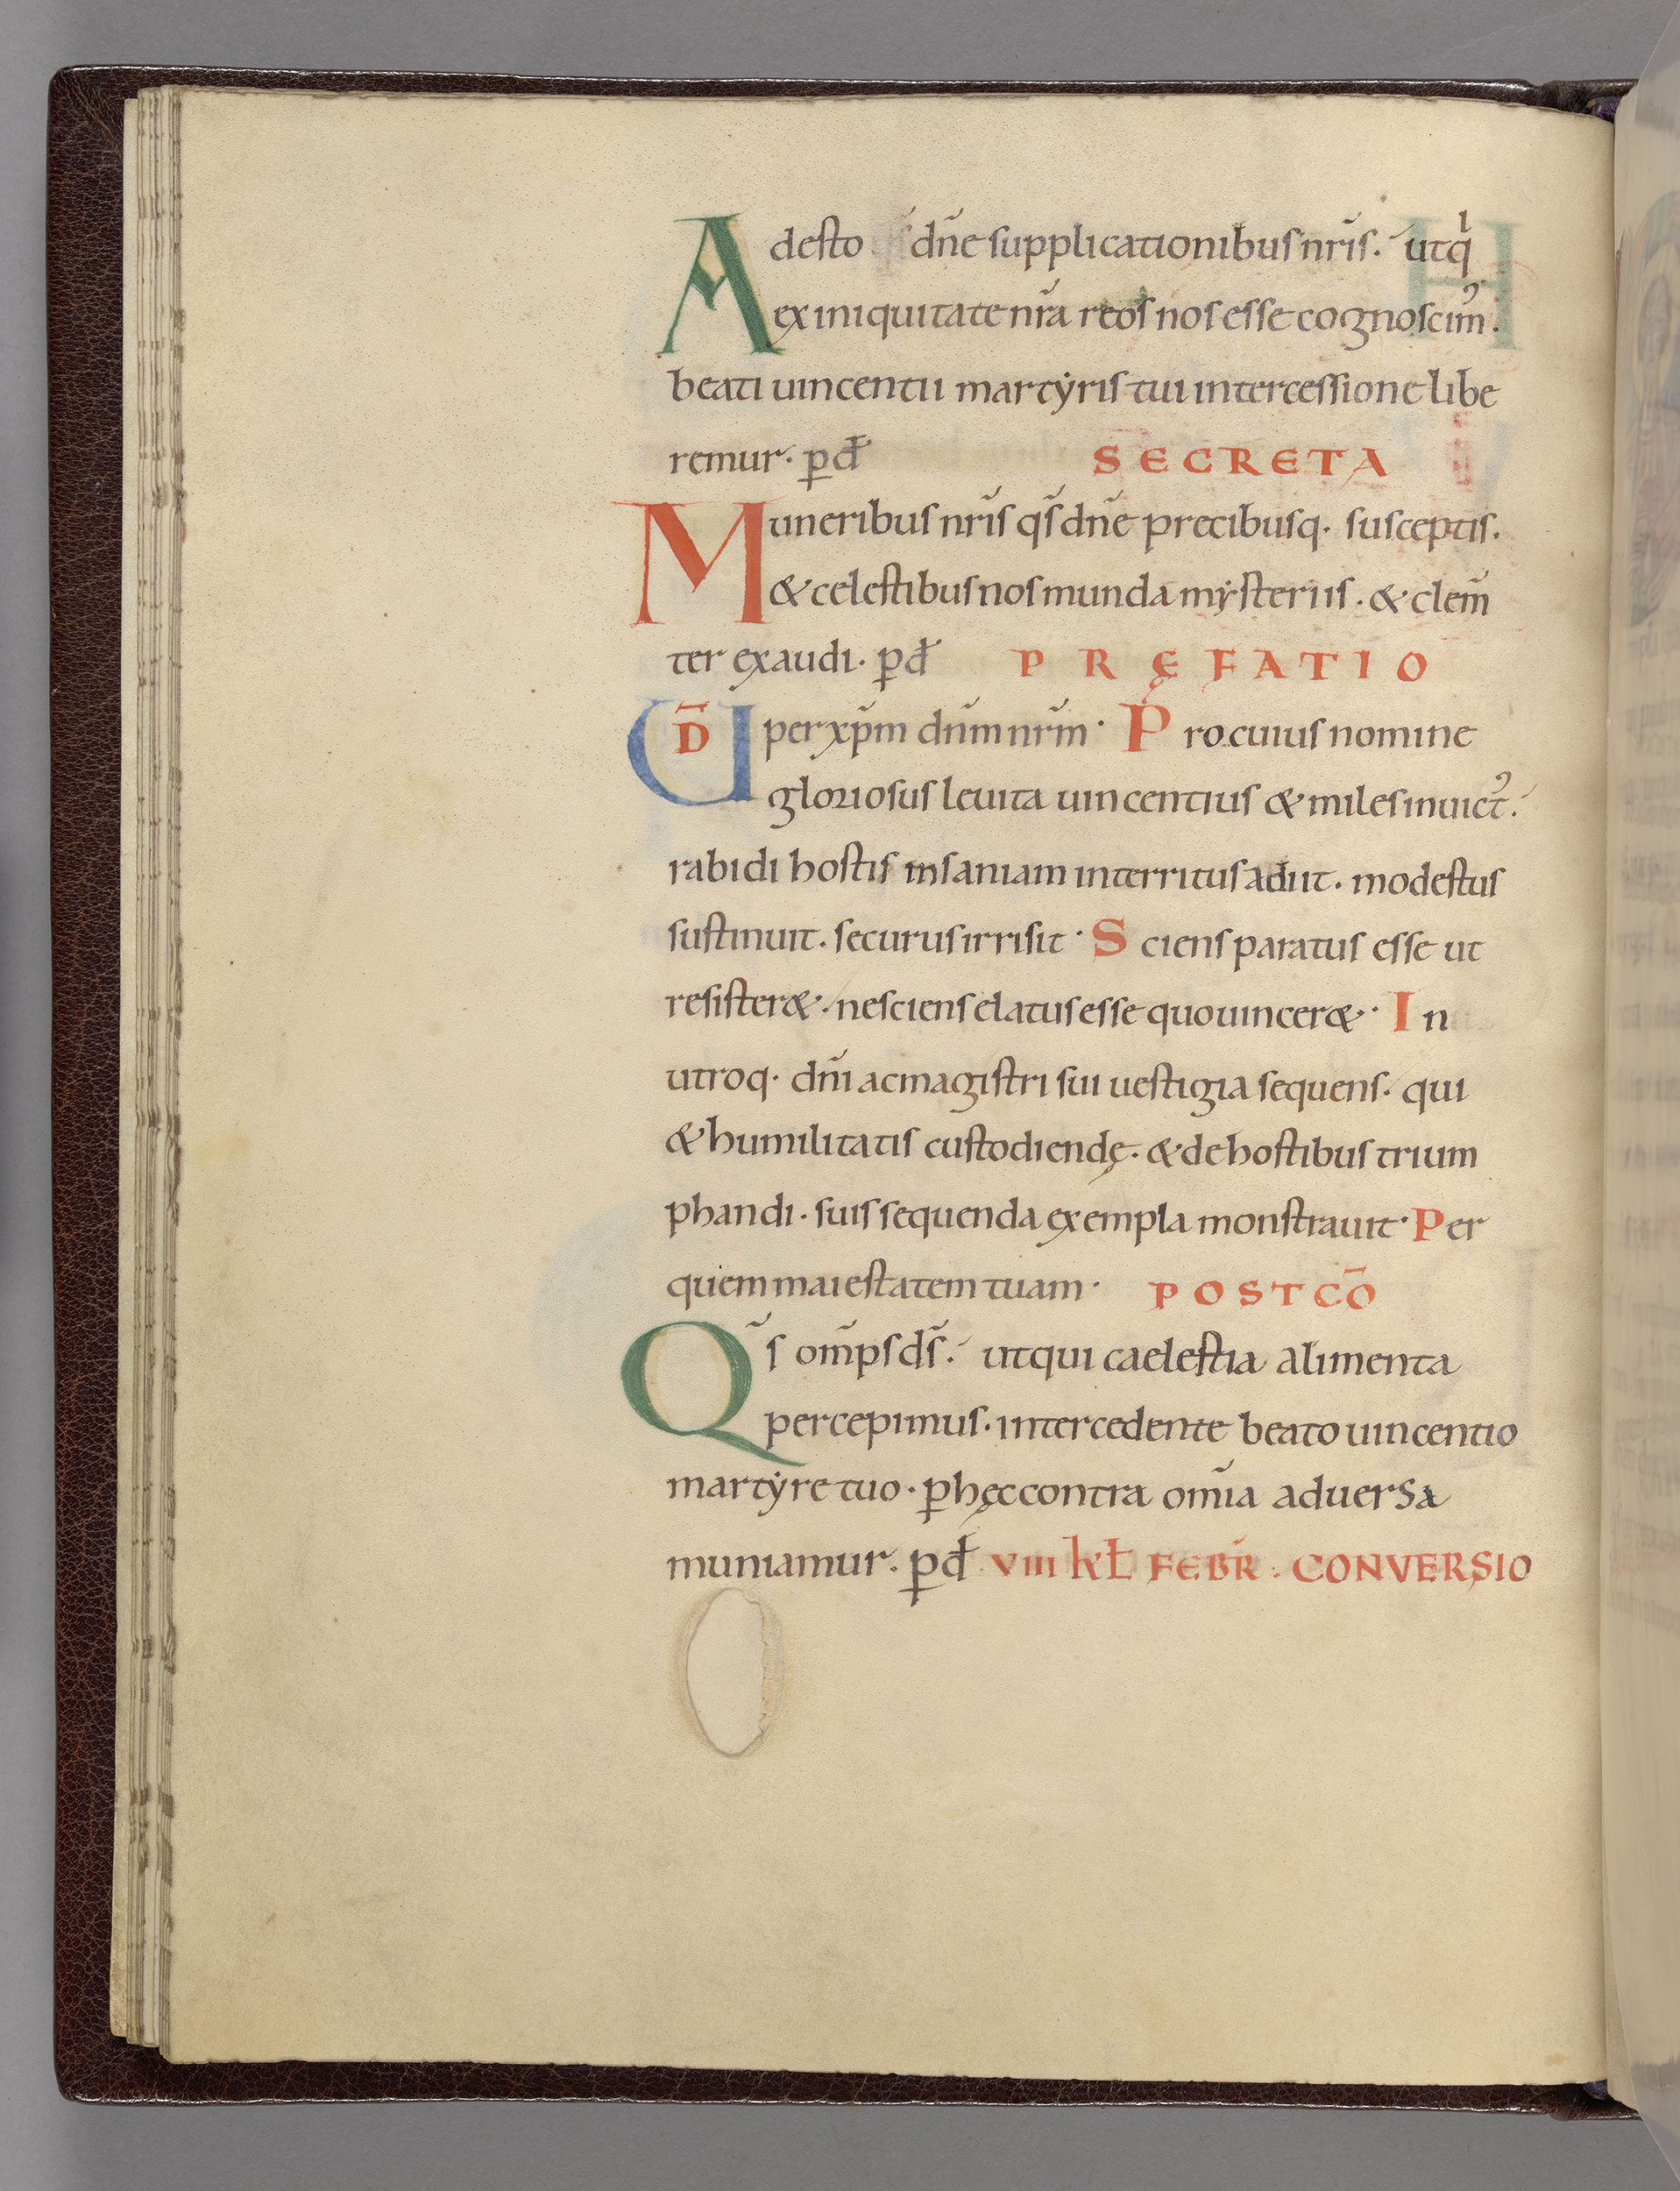 Adesto q̄s dn̄e supplicationibus nr̄is. ut qͥ
ex iniquitate nr̄a reos nos esse cognoscimꝰ.
beati uincentii martẏris tui intercessione libe
remur. ꝑ đ SECRETA
Muneribus nr̄is qs̄ dn̄e precibusq. susceptis.
& celestibus nos munda mẏsteriis. & clem̄
ter exaudi. ꝑ đ PRĘFATIO
UD̄ per xp̄m dn̄m nr̄m. Pro cuius nomine
gloriosus leuita uincentius & miles inuictꝰ.
rabidi hostis insaniam interritus adiit. modestus
sustinuit. securus irrisit. Sciens paratus esse ut
resister&. nesciens elatus esse quo uincer&. In
utroq. dn̄i ac magistri sui uestigia sequens. qui
& humilitatis custodiendę. & de hostibus trium
phandi. suis sequenda exempla monstrauit. Per
quem maiestatem tuam. POSTCŌ
Qs̄ om̄ps ds̄. ut qui caelestia alimenta
percepimus. intercedente beato uincentio
martẏre tuo. ꝑ hęc contra om̄ia aduersa
muniamur. ꝑ đ VIII kƚ FEBR̄. CONVERSIO